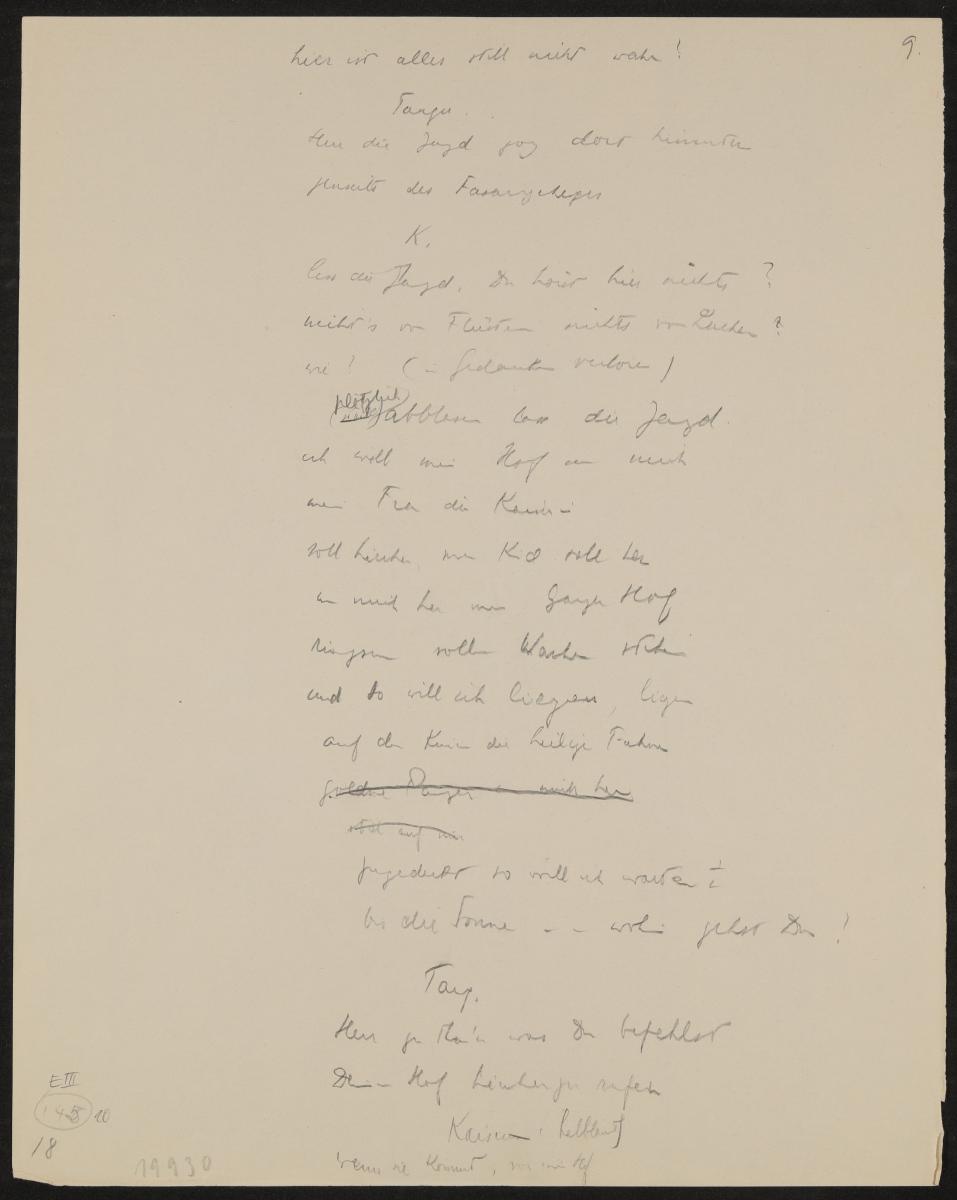 9.
hier ist alles still nicht wahr!
Tarqu.
Herr die Jagd zog dort hinunter
jenseits des Fasangeheges
K.
lass die Jagd. Du hörst hier nichts?
nichts von Flüstern nichts von Lachen?
wie! (in Gedanken verloren)
(plötzlich) abblasen lass die Jagd.
ich will mein Hof um mich
meine Frau die Kaiserin
soll hierher, mein Kind soll her
um mich her mein ganzer Hof
ringsum sollen Wachen stehn
und so will ich liegen, liegen
auf den Knien die heilige Fahne
goldne Panzer um mich her
zugedeckt so will ich warten
bis die Sonne -- wohin gehst Du!
Tarq.
Herr zu thu'n was Du befiehlst
Deinen Hof hierher zu rufen
Kaiser: halblaut
wenn sie kommt, mein Hof
E III
145 20
18
19930